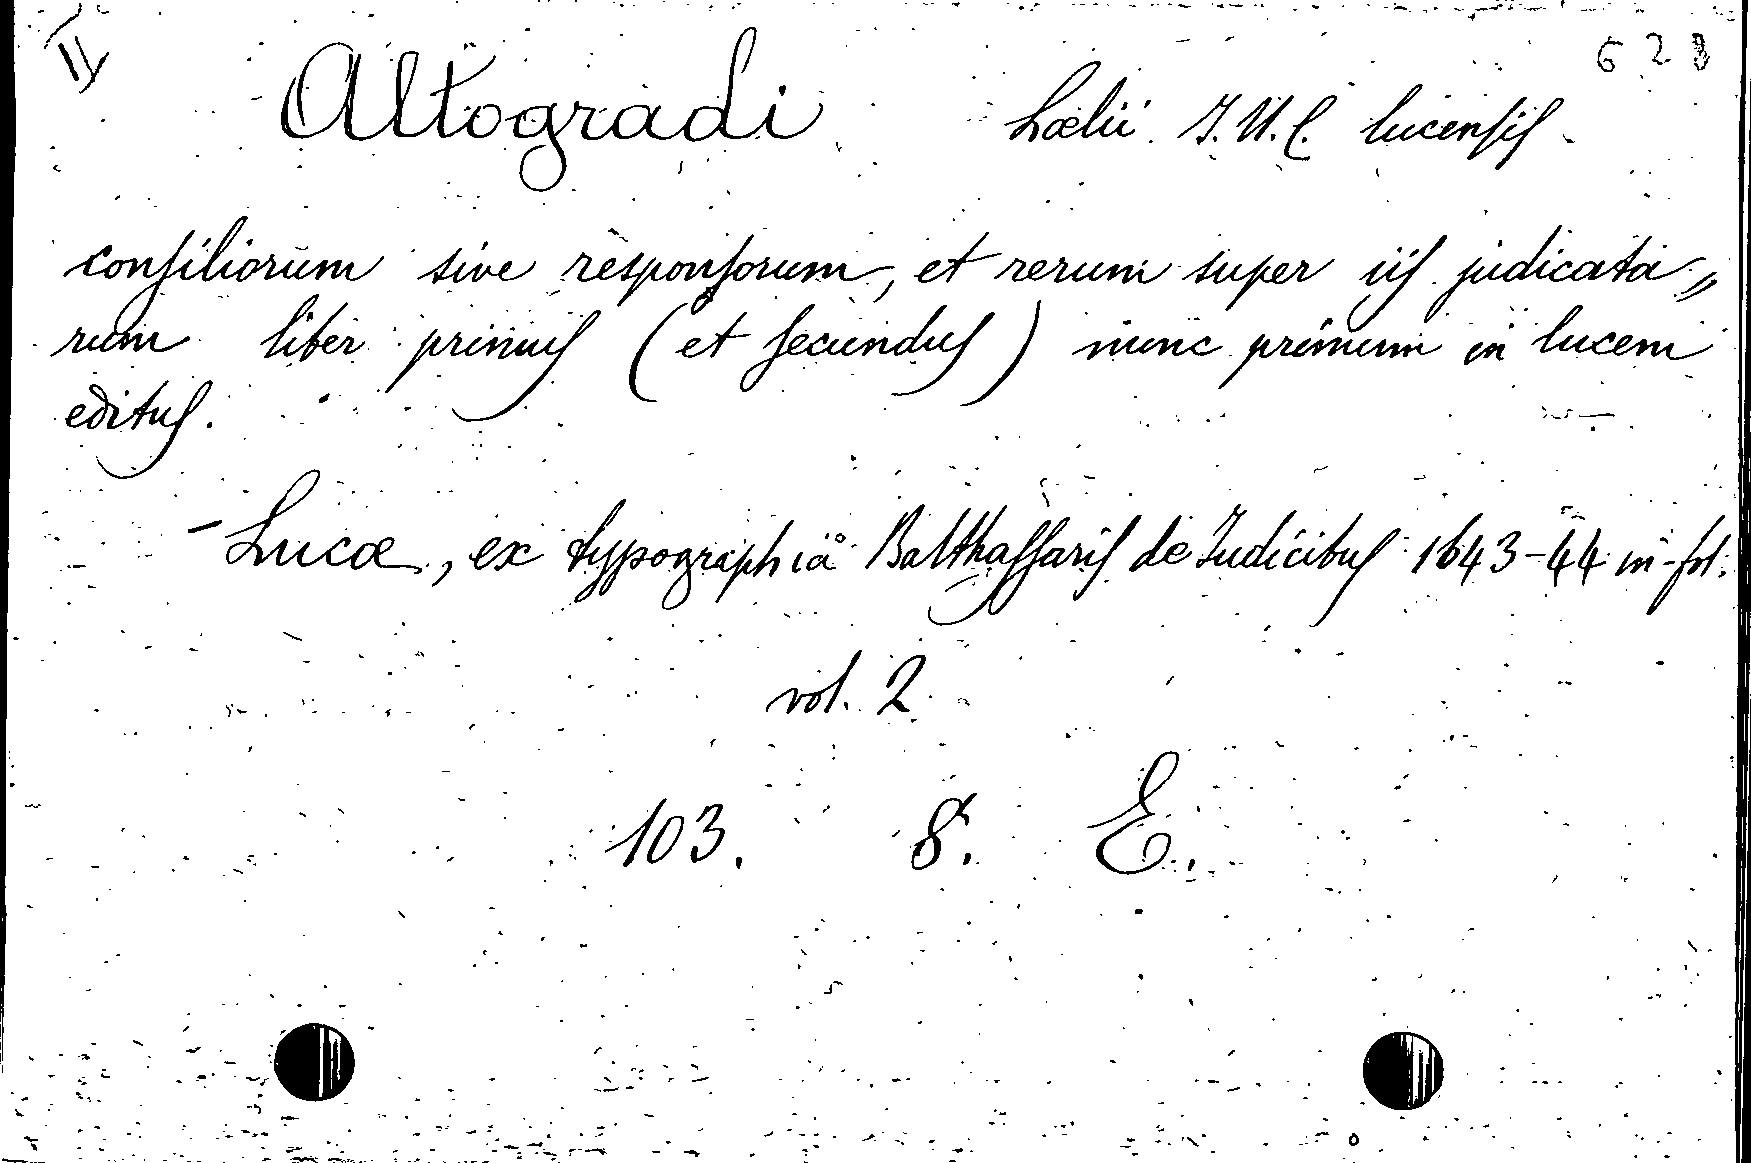 II 628
Altogradi Lælii J. U. C. lucensis
consiliorum sive responsorum, et rerum super iis judicata„
rum liber primus (et secundus) nunc primum in lucem
editus.
- Lucæ, ex typographiâ Balthassaris de Judicibus 1643-44 in-fol.
vol. 2
103. 8. E.